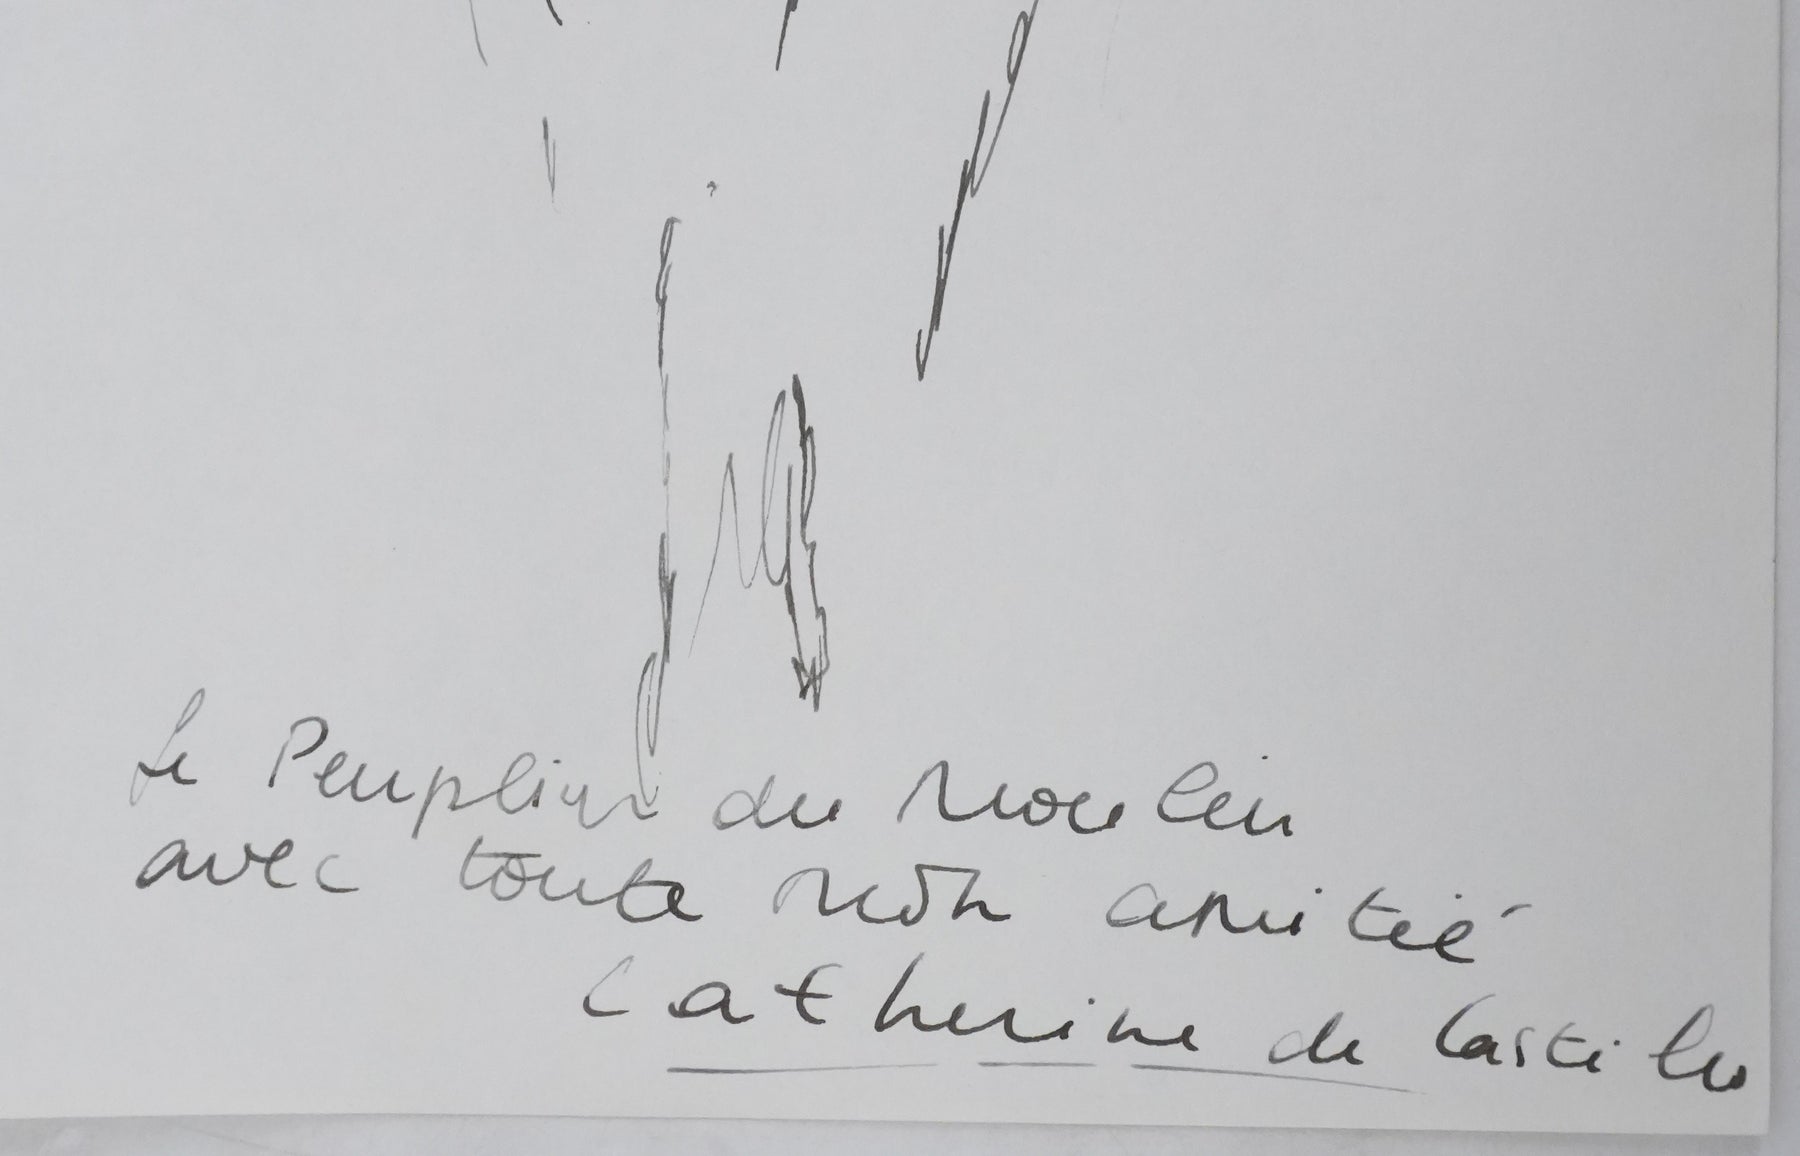 Le Peuplier du Moulin
avec toute mon amitié
Catherine de Castilla